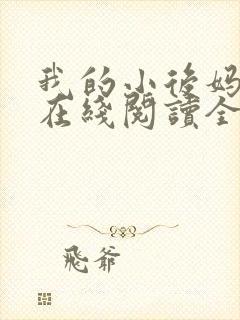 我的小後妈
在綫閱讀全
飛爷